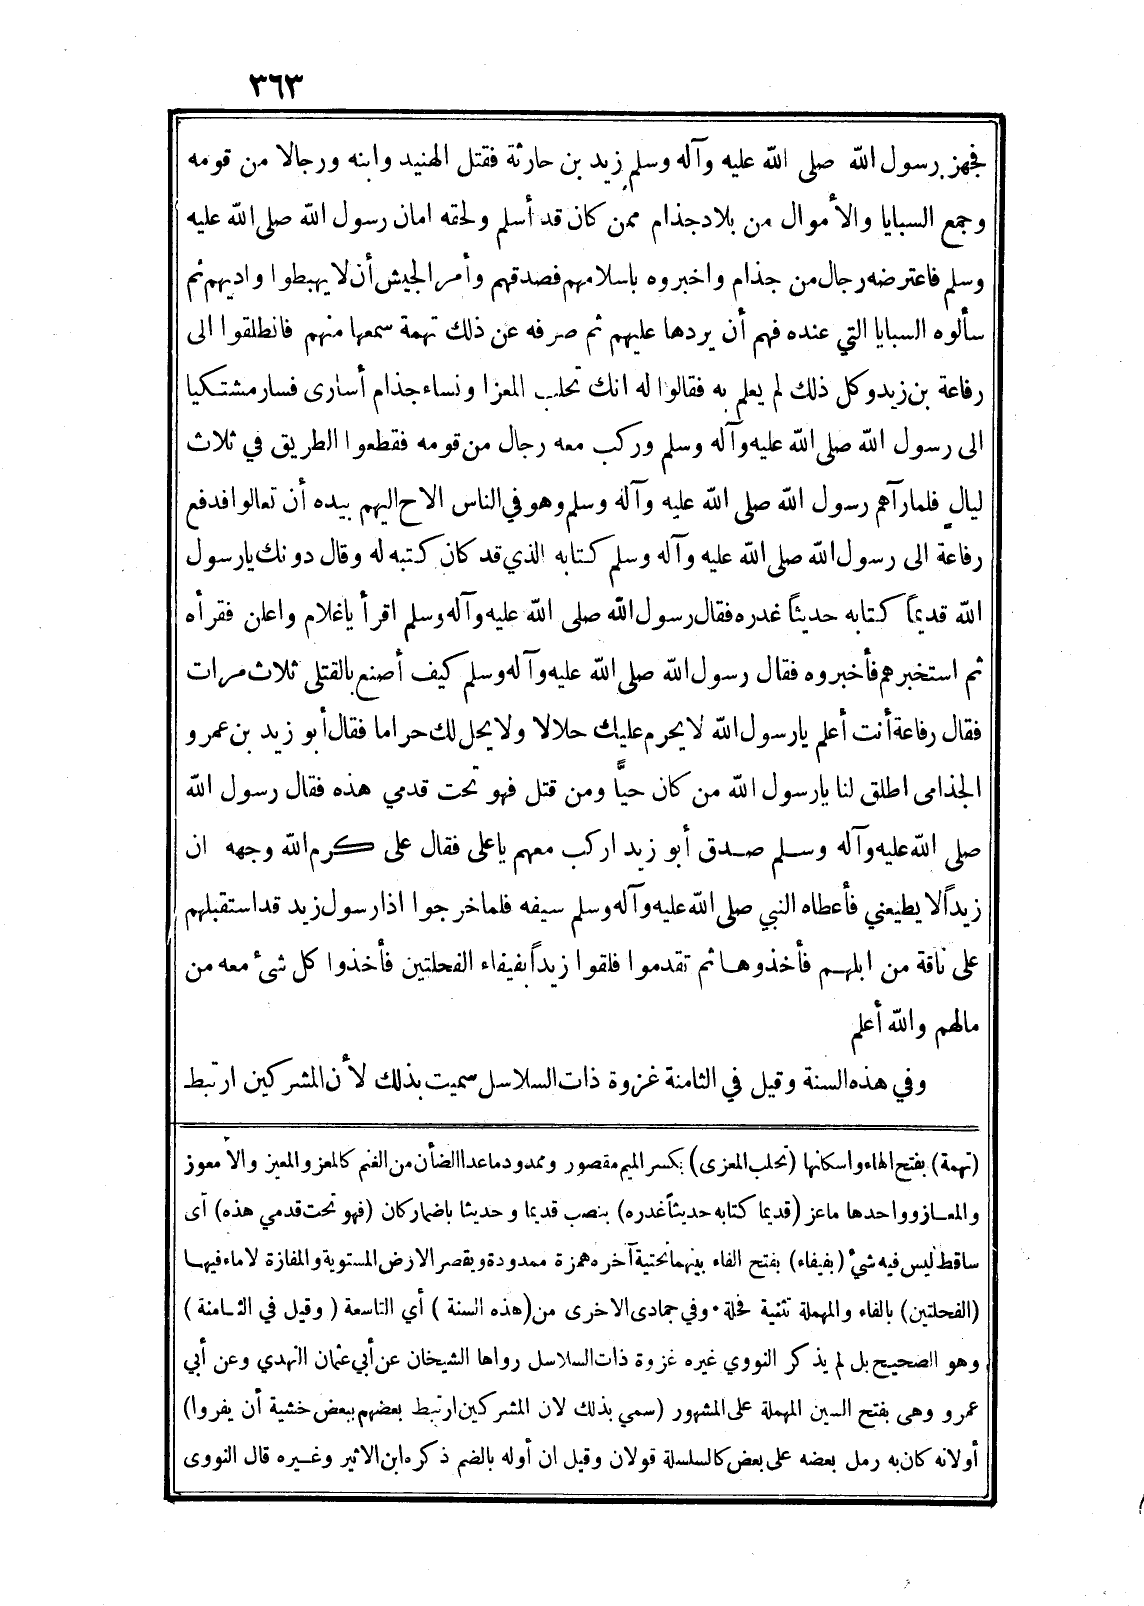 ٣٦٣
فجهز رسول الله صلى الله عليه وآله وسلم زيد بن حارثة فقتل الهنيد وابنه ورجالا من قومه
وجمع السبايا والأموال من بلاد جذام ممن كان قد أسلم ولحقه امان رسول الله صلى الله عليه
وسلم فاعترضه رجال من جذام واخبروه باسلامهم فصدقهم وأمر الجيش أن لا يهبطوا واديهم ثم
سألوه السبايا التي عنده فهم أن يردها عليهم ثم صرفه عن ذلك تهمة سمعها منهم فانطلقوا الى
رفاعة بن زيد وكل ذلك لم يعلم به فقالوا له انك تحلب المعزا ونساء جذام أسارى فسار مشتكيا
الى رسول الله صلى الله عليه وآله وسلم وركب معه رجال من قومه فقطعوا الطريق في ثلاث
ليالٍ فلما رآهم رسول الله صلى الله عليه وآله وسلم وهو في الناس الاح اليهم بيده أن تعالوا فدفع
رفاعة الى رسول الله صلى الله عليه وآله وسلم كتابه الذي قد كان كتبه له وقال دونك يا رسول
الله قديماً كتابه حديثاً غدره فقال رسول الله صلى الله عليه وآله وسلم اقرأ يا غلام واعلن فقرأه
ثم استخبرهم فأخبروه فقال رسول الله صلى الله عليه وآله وسلم كيف أصنع بالقتلى ثلاث مرات
فقال رفاعة أنت أعلم يا رسول الله لا يحرم عليك حلالا ولا يحل لك حراما فقال أبو زيد بن عمرو
الجذامى اطلق لنا يا رسول الله من كان حياً ومن قتل فهو تحت قدمي هذه فقال رسول الله
صلى الله عليه وآله وسلم صدق أبو زيد اركب معهم يا على فقال على كرم الله وجهه ان
زيداً لا يطيعني فأعطاه النبي صلى الله عليه وآله وسلم سيفه فلما خرجوا اذا رسول زيد قد استقبلهم
على ناقة من ابلهم فأخذوها ثم تقدموا فلقوا زيداً بفيفاء الفحلتين فأخذوا كل شئ معه من
مالهم والله أعلم
وفي هذه السنة وقيل في الثامنة غزوة ذات السلاسل سميت بذلك لأن المشركين ارتبط
(تهمة) بفتح الهاء واسكانها (تحلب المعزى) بكسر الميم مقصور وممدود ماعدا الضأن من الغنم كالمعز والمعيز والأمعوز
والمعاز وواحدها ماعز (قديما كتابه حديثاً غدره) بنصب قديما وحديثا باضمار كان (فهو تحت قدمي هذه) أى
ساقط ليس فيه شئ (بفيفاء) بفتح الفاء بينهما تحتية آخره همزة ممدودة ويقصر الارض المستوية والمفازة لا ماء فيها
(الفحلتين) بالفاء والمهملة تثنية فحلة • وفي جمادى الاخرى من (هذه السنة) أي التاسعة (وقيل في الثامنة)
وهو الصحيح بل لم يذكر النووي غيره غزوة ذات السلاسل رواها الشيخان عن أبي عثمان النهدي وعن أبي
عمرو وهى بفتح السين المهملة على المشهور (سمي بذلك لان المشركين ارتبط بعضهم ببعض خشية أن يفروا)
أولانه كان به رمل بعضه على بعض كالسلسلة قولان وقيل ان أوله بالضم ذكره ابن الاثير وغيره قال النووى